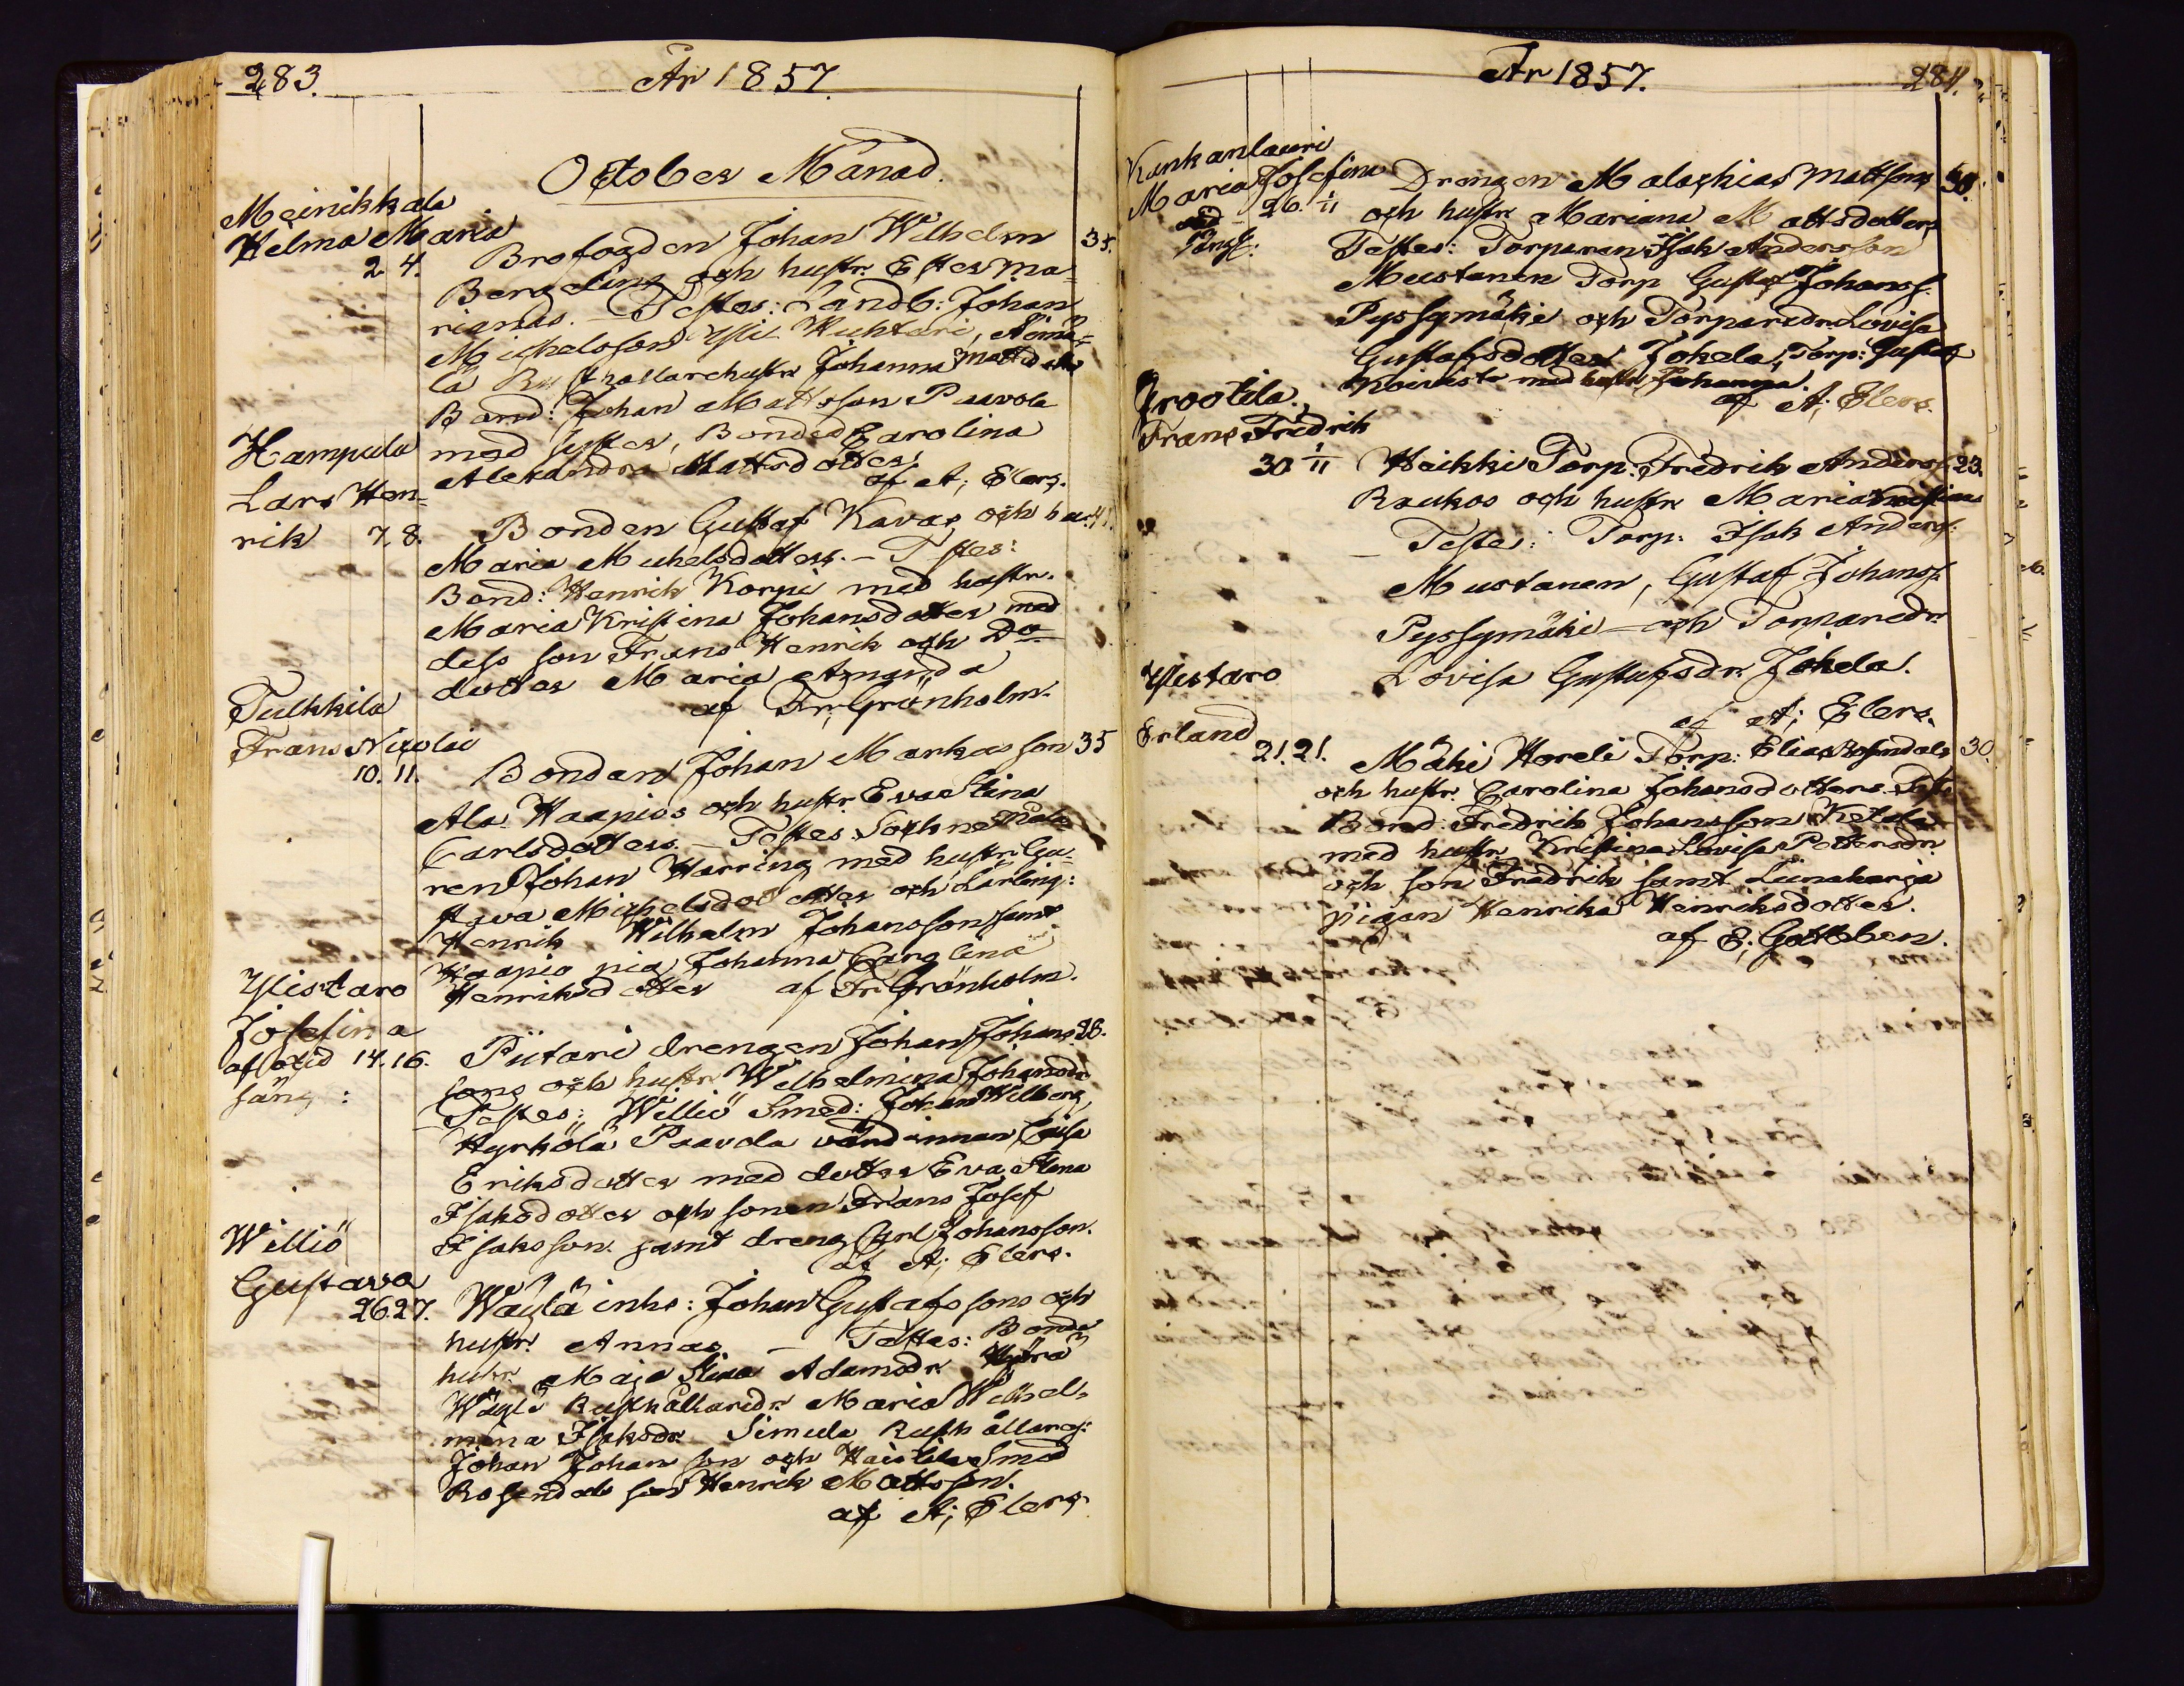 283.
År 1857.
October Månad.
Meinikkala
Helma Maria
2. 4.
Brofogden Johan Wilhelm 35.
Bergeling och hustr. Ester Ma-
rianas. — Testes: Landb: Johan
Michelsson Yli Wichteri, Äimä-
lä Rusthollarehustr Johanna Mattsdotter
Bond: Johan Mattsson Paavola
med syster, Bonded Carolina
Alexandra Mattsdotter.
af A; Elers.
Hampula
Lars Hen-
rik 7. 8.
Bonden Gustaf Kavas och hu. 41.
Maria Michelsdotters. — Testes:
Bond: Henrik Korpi med hustr.
Maria Kristina Johansdotter med
dess son Frans Henrik och Do
dotter Maria Amanda
af Fr: Grönholm.
Tulkkila
Frans Nicolai
10. 11.
Bonden Johan Markasson 35
Ala Haapios och hustr Eva Stina
Carlsdotters. — Testes Sockneskräd-
ren Johan Harring med hustr. Gu-
stava Michelsdotter och Lärling:
Henrik Wilhelm Johansson samt
Haapio pig Johanna Carolina
Henriksdotter af Fr: Grönholm.
Ylistaro
Josefina
aflad 14. 16.
säng:
Piitari drengen Johan Johans 28.
sons och hustr Wilhelmina Johansdr
Testes: Williö Smed: Johan Wilberg,
Hyrhölä Paavola värdinnan Caisa
Eriksdotter med dotter Eva Stina
Isaksdotter och sonen Frans Josef
Isaksson. samt dreng Carl Johansson.
af A; Elers.
Williö
Gustava
26. 27.
Wäylä inhs: Johan Gustafssons och
hustr. Annas — Testes: Bonde
hustr. Maja Stina Adamsdr.
Wäylä Rusthållaredr Maria Wilhel-
mina Isaksdr Simula Rusthållareg:
Johan Johansson och Haistila Smed
Rosendals son Henrik Mattsson.
af A; Elers
År 1857.
284.
Kunkanlauri
Maria Josefina
26. 1/11
Drengen Malachias Mattsons 30.
och hustr Mariana Mattsdotters
Testes: Torparen Isak Andersson
Mustanen Torp Gustaf Johanss.
Pyssymäki och Torparedr Lovisa
Gustafsdotter Jokela, Torp: Gustaf
Koivisto med hustr Johanna.
af A; Elers.
Irvottila.
Frans Fredrik
30 1/11
Heikki Torp: Fredrik Anderss. 23.
Raukos och hustr Maria
— Testes: Torp: Isak Anderss.
Mustanen, Gustaf Johanss.
Pyssymäki — och Torparedr.
Lovisa Gustafsdr. Jokela.
af A; Elers.
Ylistaro
Erland
21. 21.
Mäki Horeli Torp: Elias Rosendals 30.
och hustr. Carolina Johansdotters. Test.
Bond: Fredrik Johansson Ketola
med hustr Kristina Lovisa Pettersdr.
och son Fredrik samt Liinaharja
pigan Henrika Henriksdotter.
af E; Gottleben.